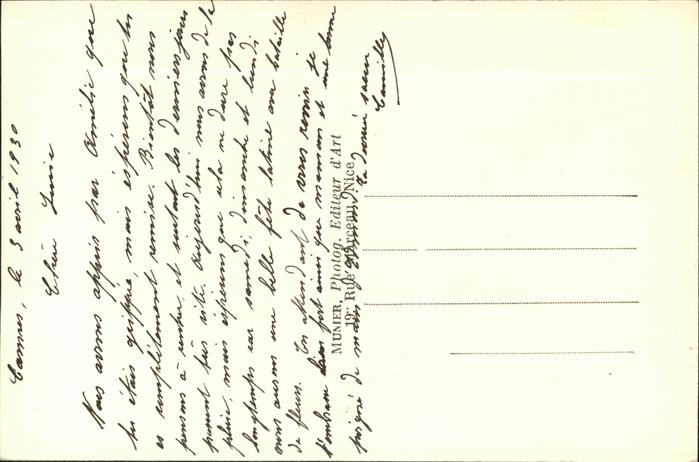 Cannes, le 3 avril 1930
Chère Lucie
Nous avons appris par Amélie que
tu étais grippée, mais espérons que tu
es complètement remise. Bientôt nous
pensons à rentrer, et surtout les derniers jours
passent très vite. Aujourd'hui nous avons de la
pluie, mais espérons que cela ne dure pas
longtemps car samedi, dimanche et lundi
nous aurons une belle fête latine avec bataille
de fleurs. En attendant de vous revoir je
t'embrasse bien fort ainsi que maman et une bonne
poignée de main
Ta sœur
Camille
MUNIER, Photog. Editeur d'Art
19, Rue Marceau, Nice